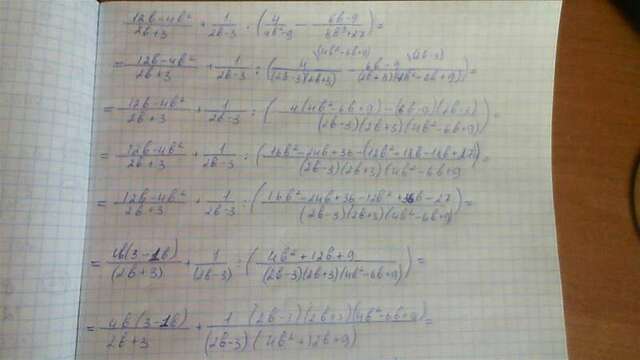 (12b-4b²)/(2b+3) + 1/(2b-3) : (4/(4b²-9) - (6b-9)/(8b³+27)) =
= (12b-4b²)/(2b+3) + 1/(2b-3) : (4\(4b²-6b+9)/((2b-3)(2b+3)) - (6b-9)\(2b-3)/((2b+3)(4b²-6b+9))) =
= (12b-4b²)/(2b+3) + 1/(2b-3) : ((4(4b²-6b+9)-(6b-9)(2b-3))/((2b-3)(2b+3)(4b²-6b+9))) =
= (12b-4b²)/(2b+3) + 1/(2b-3) : ((16b²-24b+36-(12b²-18b-18b+27))/((2b-3)(2b+3)(4b²-6b+9)) =
= (12b-4b²)/(2b+3) + 1/(2b-3) : ((16b²-24b+36-12b²+36b-27)/((2b-3)(2b+3)(4b²-6b+9))) =
= 4b(3-1b)/(2b+3) + 1/(2b-3) : ((4b²+12b+9)/((2b-3)(2b+3)(4b²-6b+9))) =
= 4b(3-1b)/(2b+3) + 1(2b-3)(2b+3)(4b²-6b+9)/((2b-3)(4b²+12b+9)) =